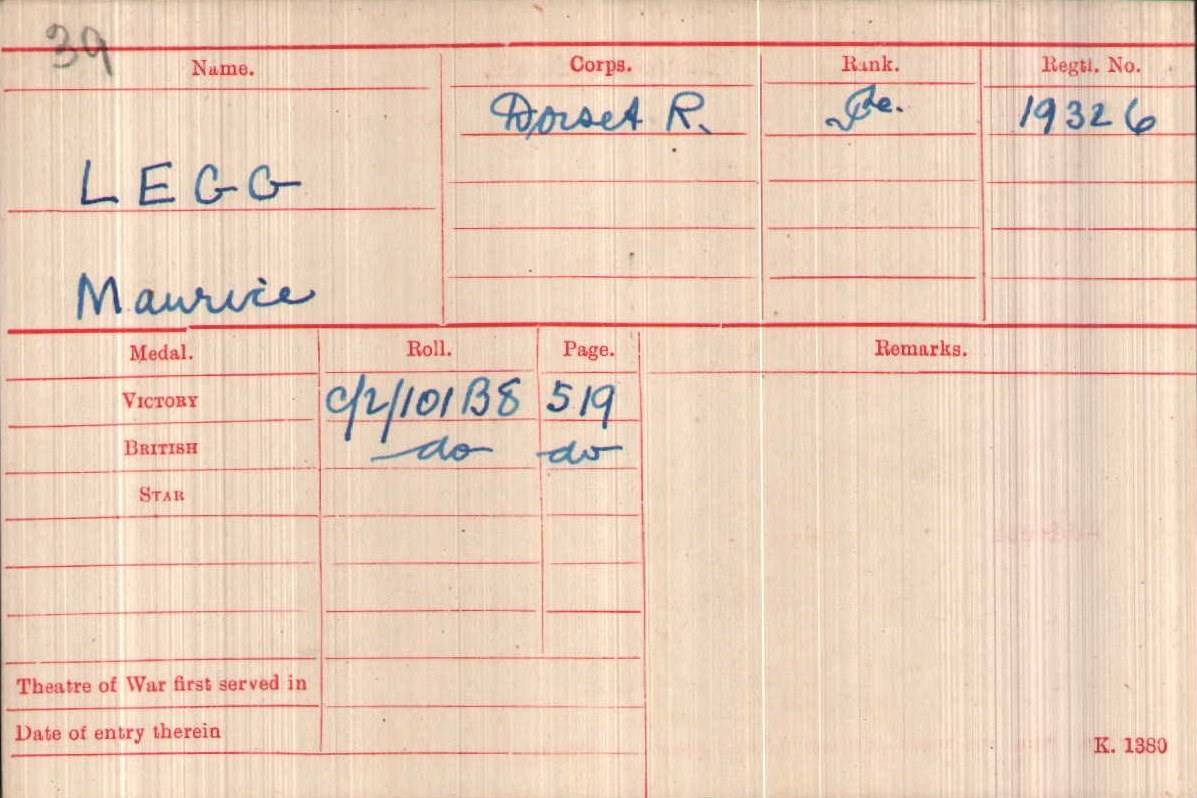 39
Name. Corps. Rank. Regtl. No.
Dorset R. Pte. 19326
LEGG
Maurice
Medal. Roll. Page. Remarks.
VICTORY C/2/101B8 519
BRITISH do do
STAR
Theatre of War first served in
Date of entry therein
K. 1380